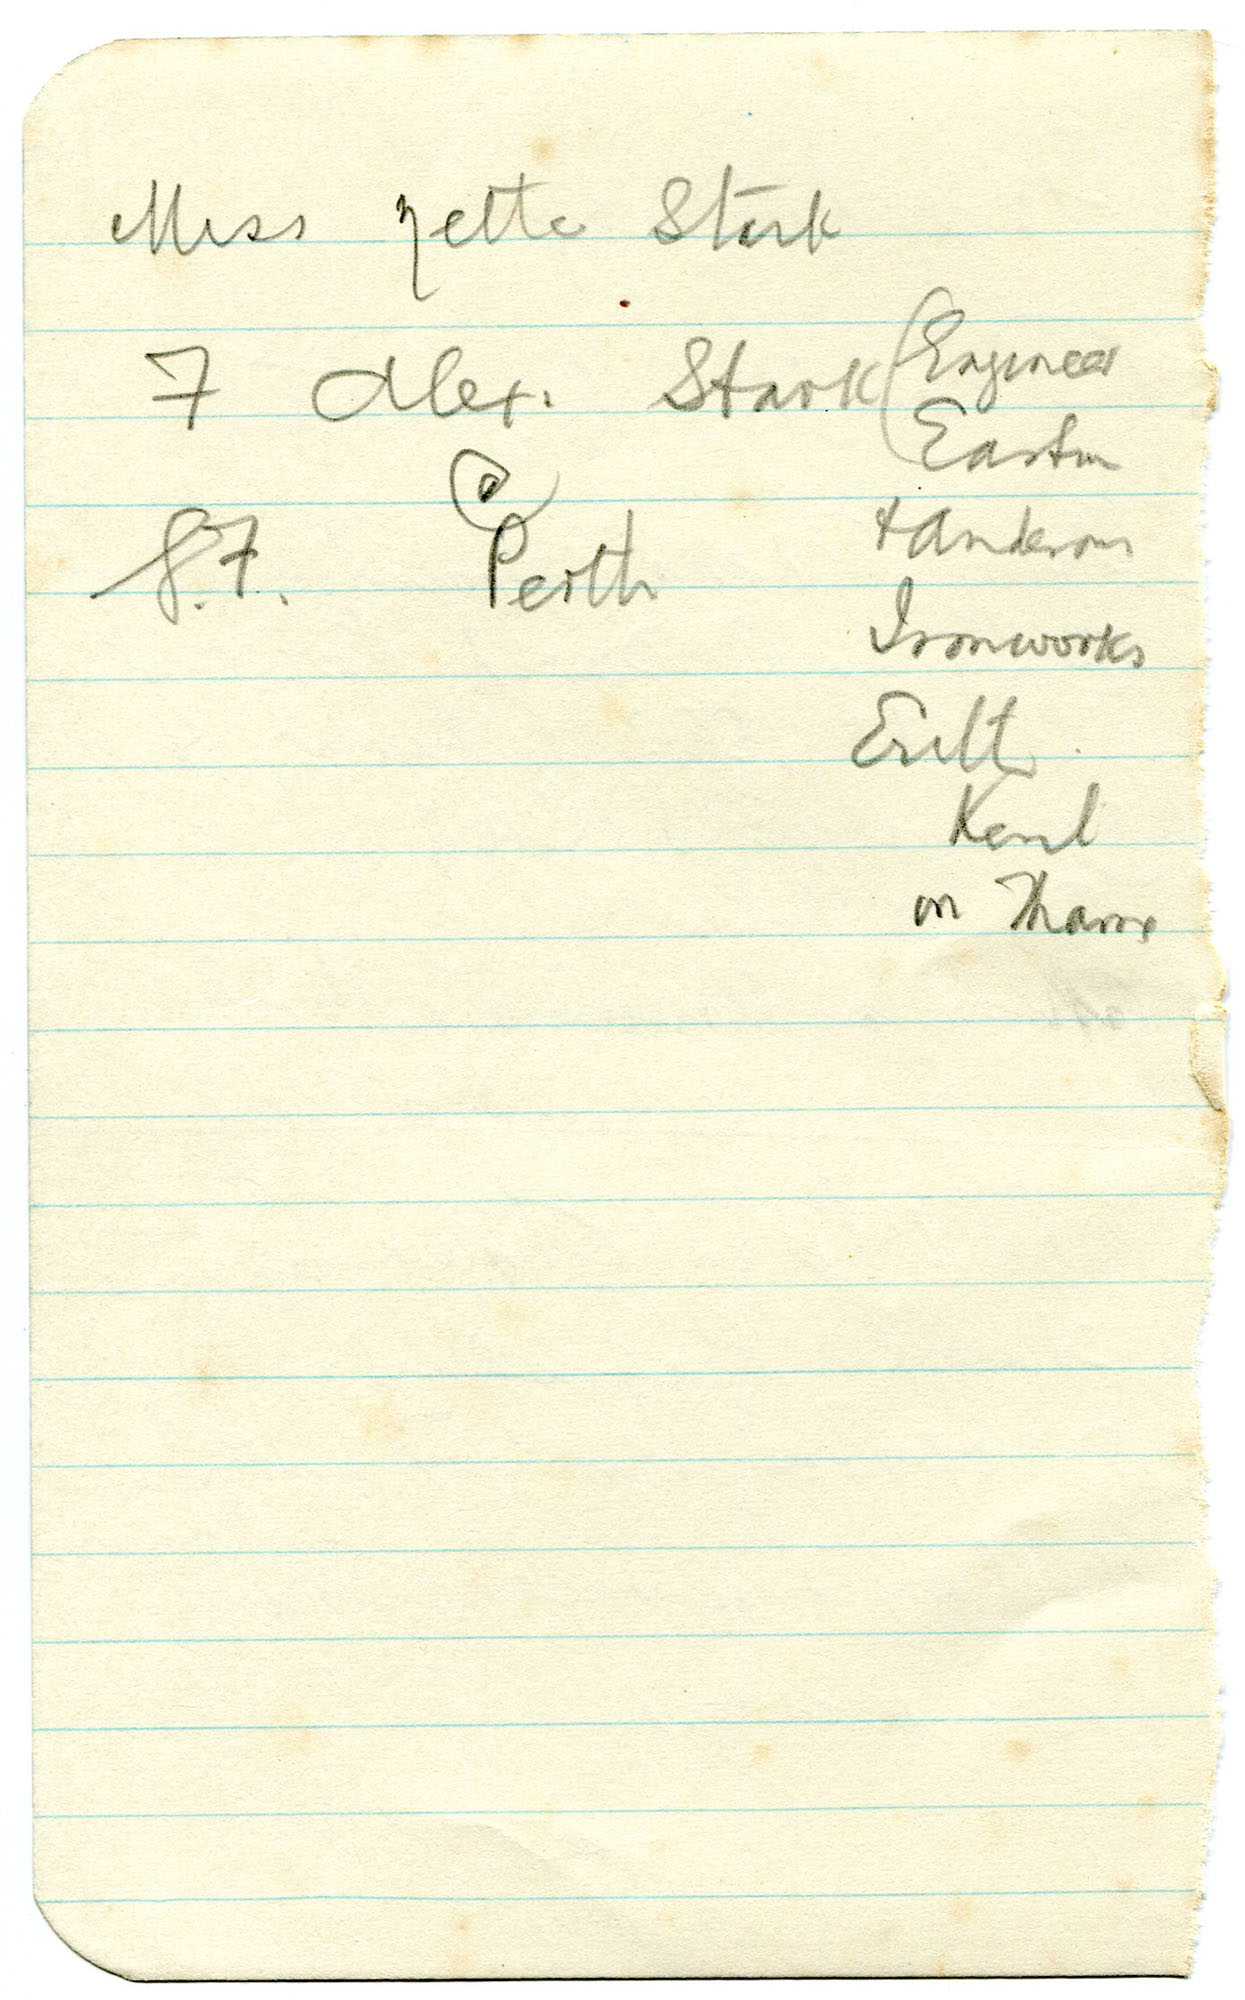 Miss Zette Stark
F Alex. Stark (Engineer
Easton
+ Anderson
Ironworks
Erith
Kent
on Thames
g.F. Perth